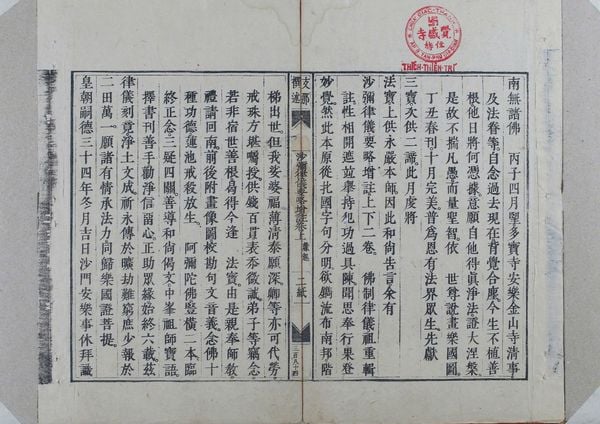 南無諸佛 丙子四月望多寶寺安樂金山寺清事
及法眷等自念過去現在背覺合塵今生不植善
根他日將何憑據意願自他得眞淨法證大涅槃
是故不揣凡愚而量聖智依 世尊說畫樂國圖
丁丑春刊十月完美普為恩有法界眾生先獻
三寶次供二諦此月度將
法寶上供永嚴本師因此和尚告言余有
沙彌律儀要略增註上下二卷 佛制律儀祖重輯
註性相開遮並舉持犯功過具陳聞思奉行果登
妙覺然此本原從扎國字句分明欲鋟流布南邦階
支那
撰述
沙彌律儀要略增註卷上
二紙
梯出世但我娑婆福薄清泰願深卿等亦可代勞
戒珠方堪囑授供錢百貫表忝微誠弟子等竊念
若非宿世善根爲得今逢 法寶由是親奉師教
禮請回南前後附畫像圖校勘句文音義念佛十
種功德蓮池戒殺放生 阿彌陀佛豎橫二本臨
終正念三疑四關善導和尚偈文中峯祖師寶語
擇書刊善手勸淨信畱心正助眾緣始終六載茲
律儀刻竟淨土文成祈永傳於曠劫難窮庶少報於
二田萬一願諸有情承法力同歸樂國證菩提
皇朝嗣德三十四年冬月吉日沙門安樂事休拜識
覺盛寺
住持
THIỆN-THIỆN-TRÍ